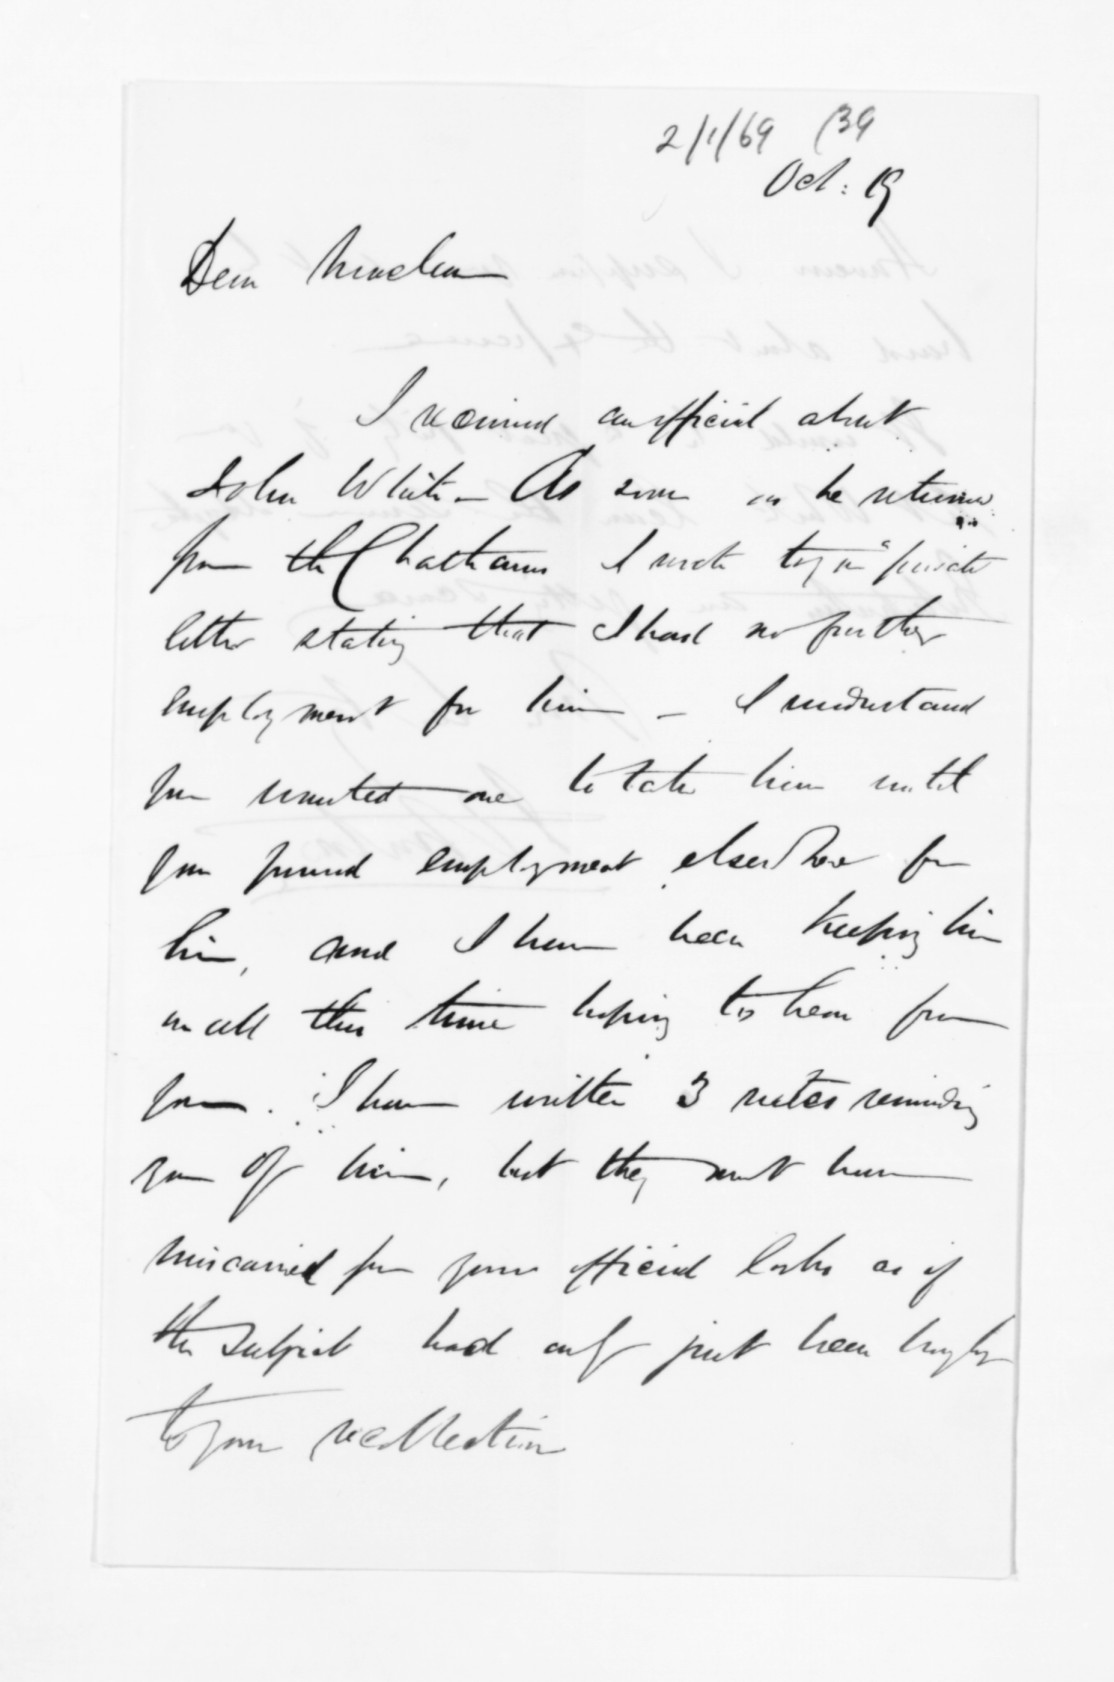 2/1/69 (39
Oct: 19
Dear Maclean
I received an official about
John White - As soon as he returned
from the Chathams I wrote to you "private
letter stating that I had no further
employment for him - I understand
you wanted me to take him until
you found employment elsewhere for
him, and I have been keeping him
on all this time hoping to hear from
you. I have written 3 notes reminding
you of him, but they must have
miscarried for your official looks as if
the subject had only just been brought
to your recollection